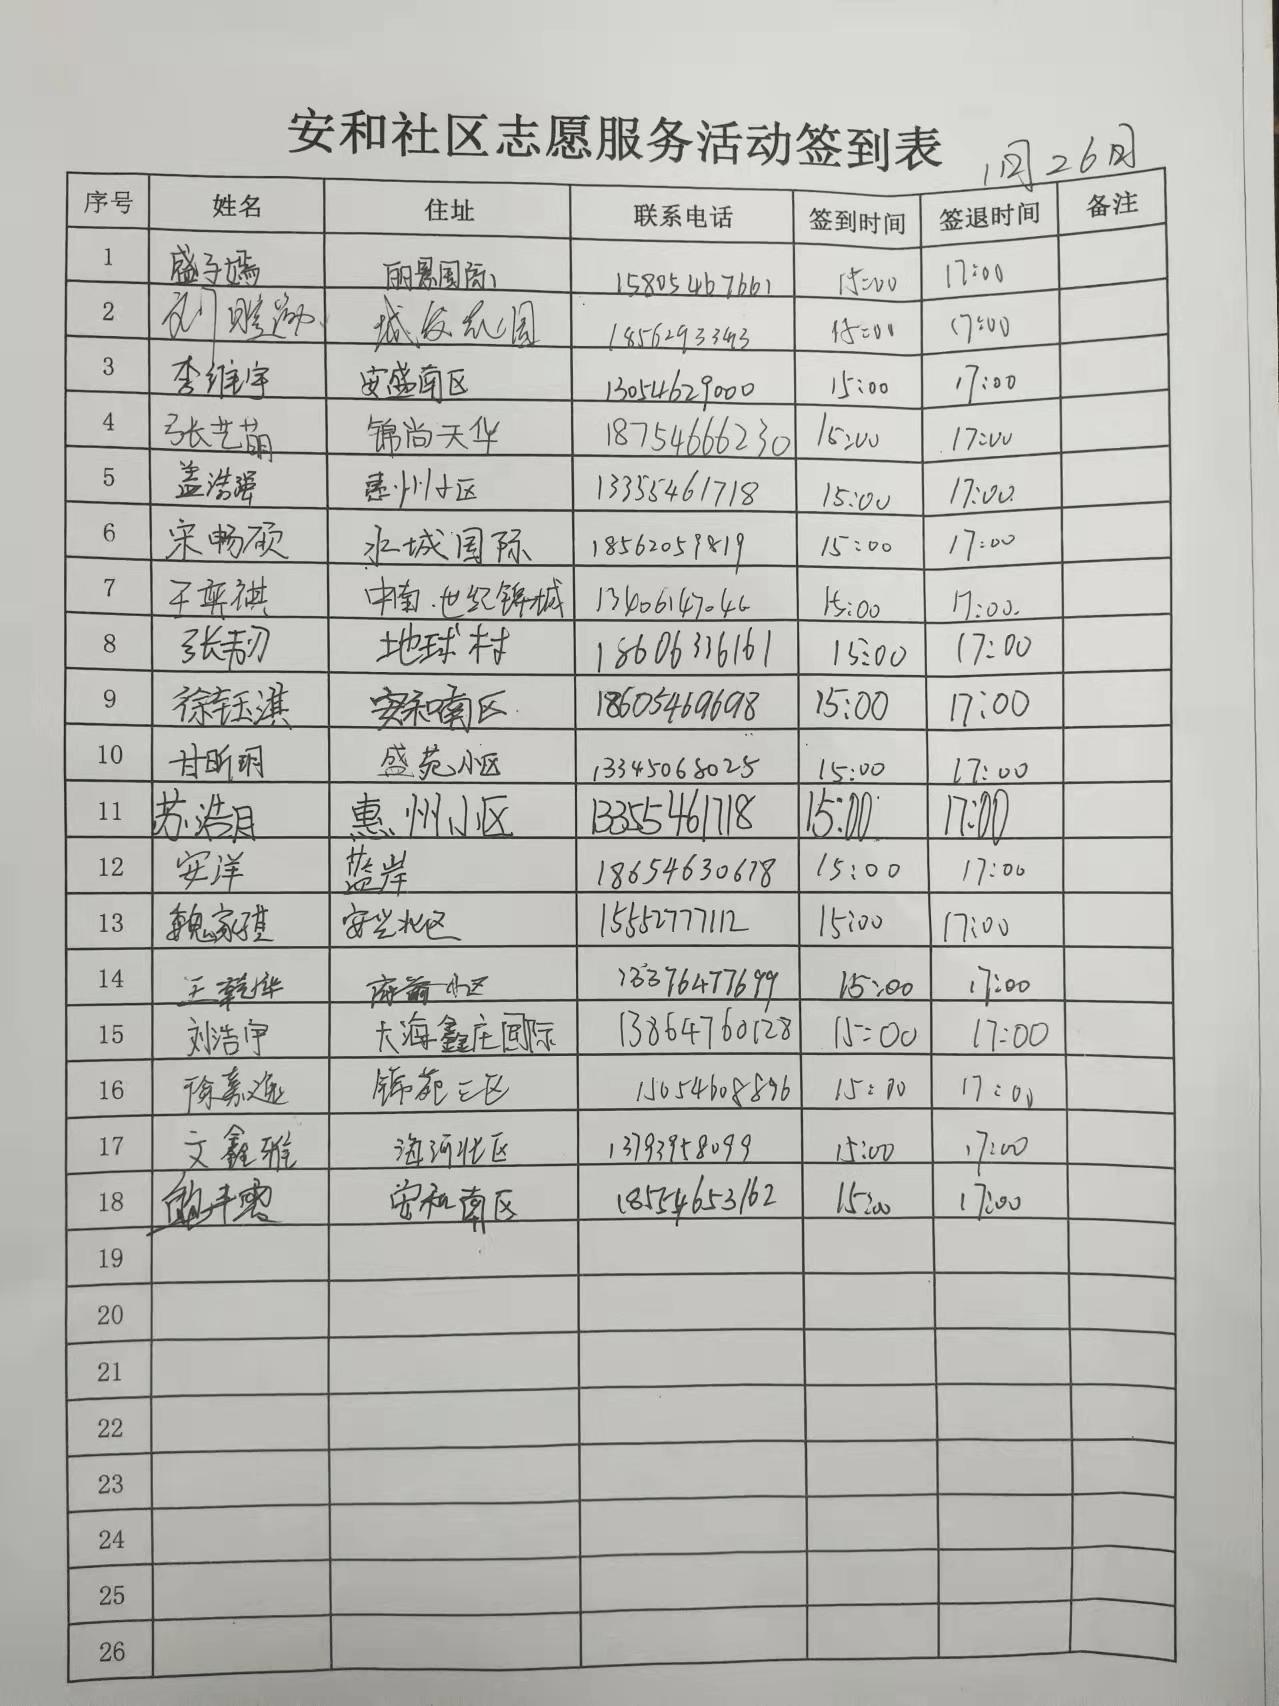 安和社区志愿服务活动签到表 1月26日
序号 姓名 住址 联系电话 签到时间 签退时间 备注
1 盛子嫣 丽景国际 15805467661 15:00 17:00
2 城发花园 15:00 17:00
3 李维宇 安盛南区 13054629000 15:00 17:00
4 张艺萌 锦尚天华 18754666230 15:00 17:00
5 盖浩强 惠州小区 13355461718 15:00 17:00
6 宋畅硕 水城国际 18562059819 15:00 17:00
7 王奕祺 中南·世纪锦城 13406147046 15:00 17:00
8 张韧 地球村 18606336161 15:00 17:00
9 徐钰淇 安和南区 18605469698 15:00 17:00
10 甘昕玥 盛苑小区 13345068025 15:00 17:00
11 苏浩月 惠州小区 13355461718 15:00 17:00
12 安洋 蓝岸 18654630678 15:00 17:00
13 魏家琪 安兴北区 15552777112 15:00 17:00
14 王乾烨 府前小区 13376477699 15:00 17:00
15 刘浩宇 大海鑫庄国际 13864760128 15:00 17:00
16 锦苑三区 15054608896 15:00 17:00
17 文鑫雅 海河北区 13793958099 15:00 17:00
18 安和南区 18554653162 15:00 17:00
19
20
21
22
23
24
25
26